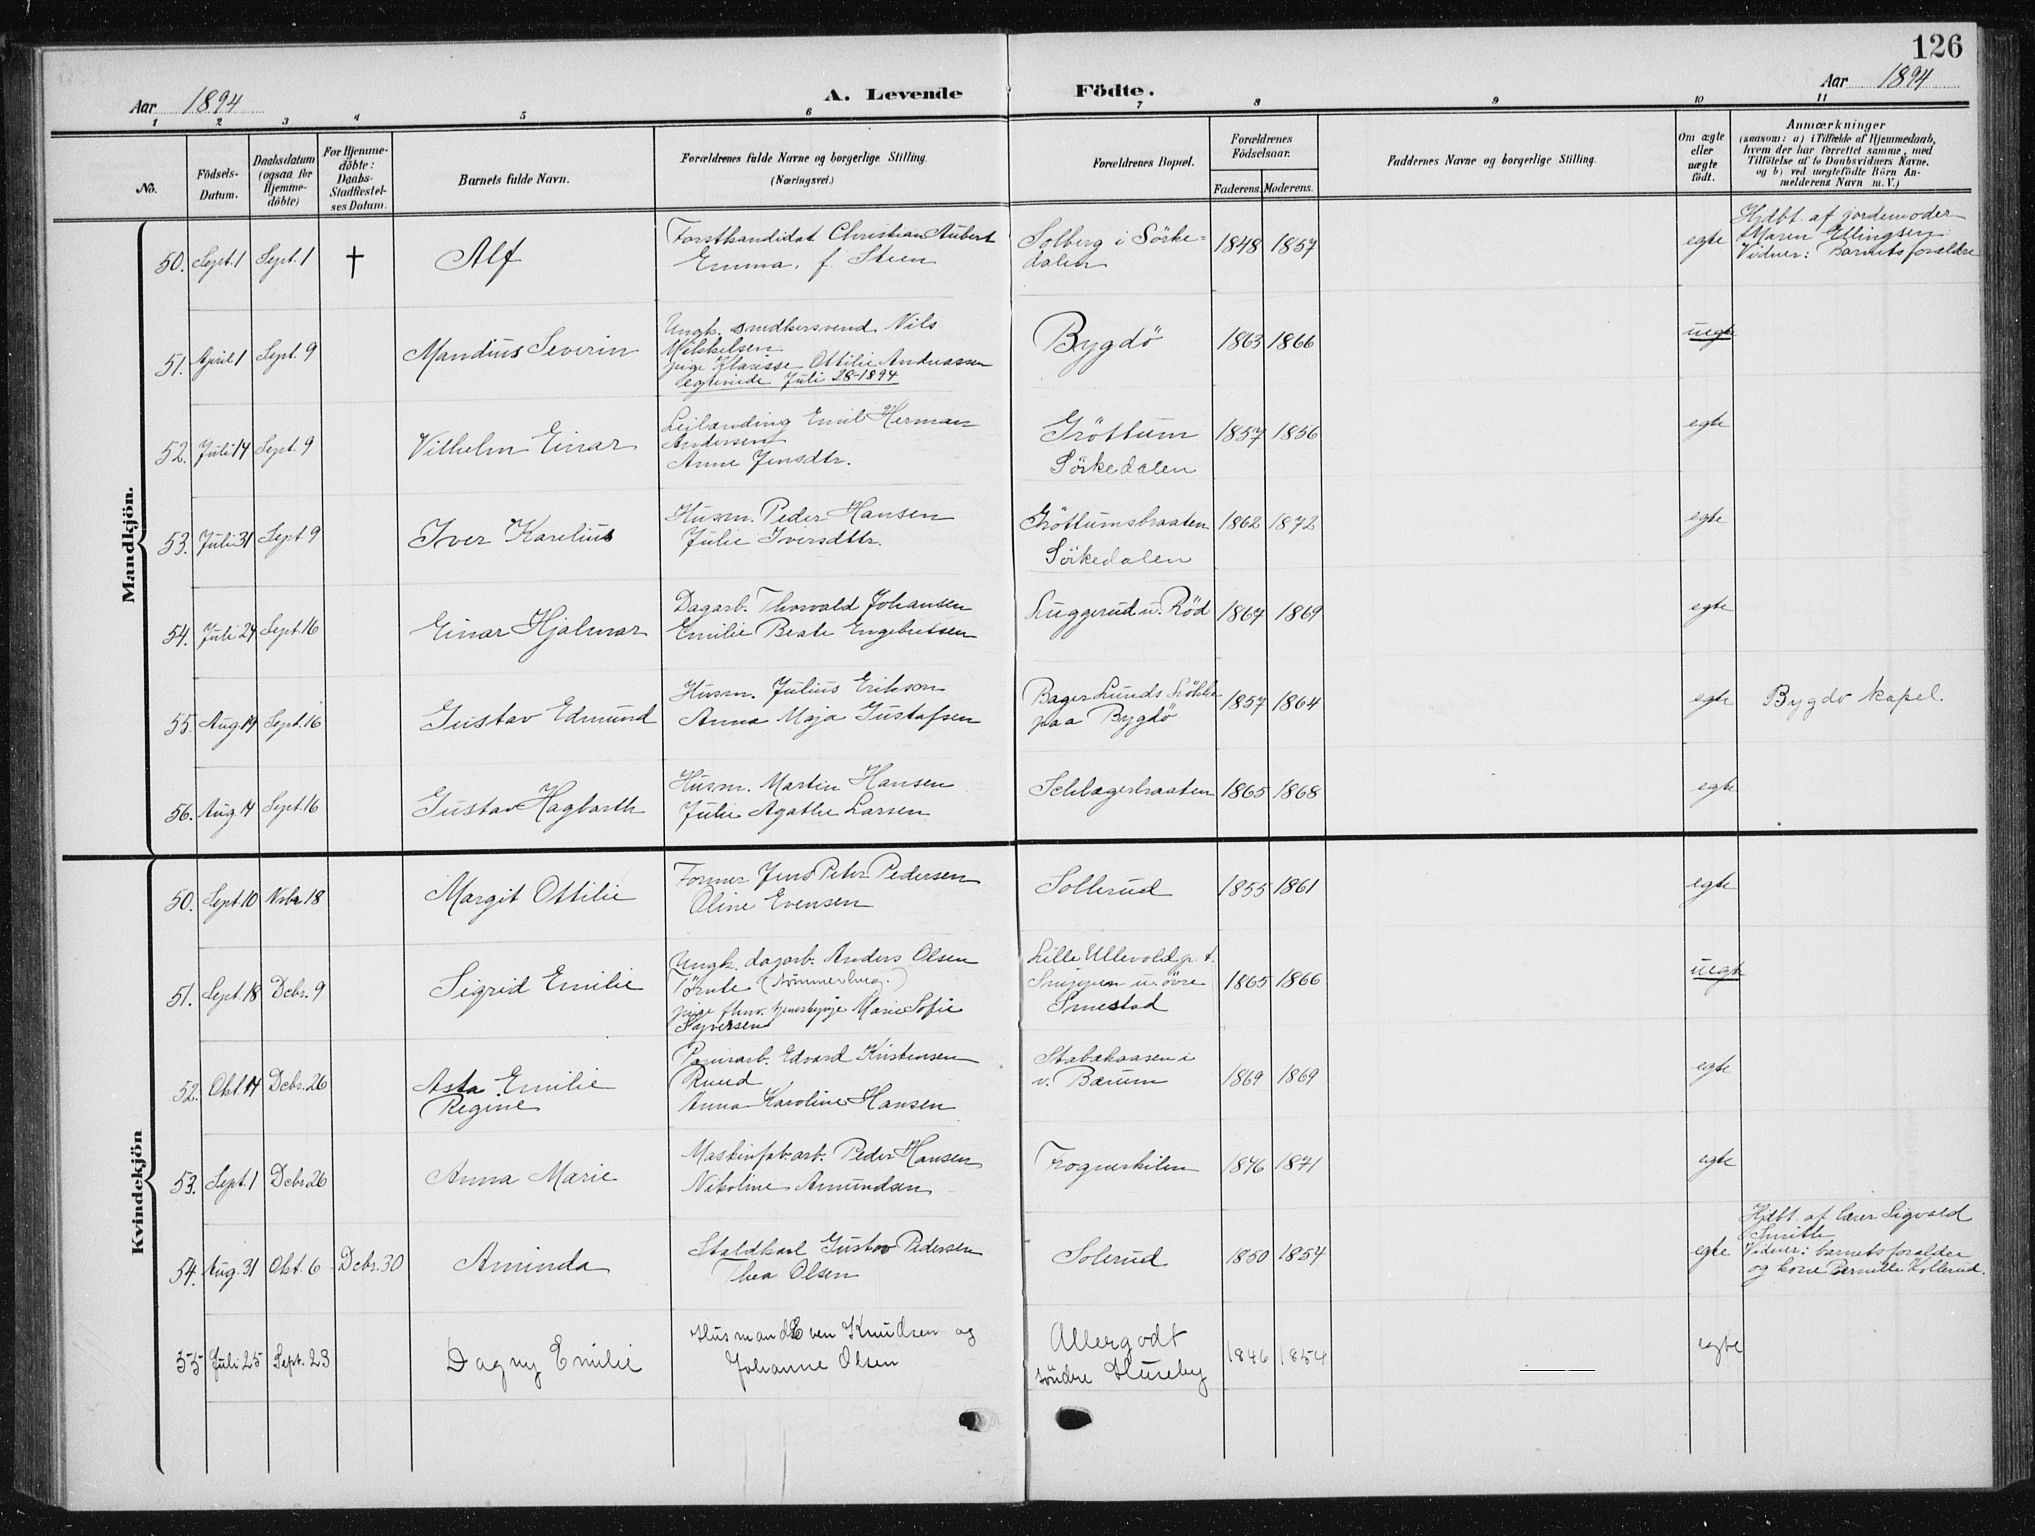 126
Aar 1894
A. Levende Födte.
Aar 1894
1 2 3 4 5 6 7 8 9 10 11
No.
Födsels-Datum.
Daabsdatum (ogsaa for Hjemme-döbte)
For Hjemme-döbte: Daabs-Stadfæstel-ses Datum.
Barnets fulde Navn.
Forældrenes fulde Navne og borgerlige Stilling.
(Næringsvei.)
Forældrenes Bopæl.
Forældrenes Födselsaar.
Faderens. Moderens.
Faddernes Navne og borgerlige Stilling.
Om ægte eller uægte födt.
Anmærkninger
(saasom: a) i Tilfælde af Hjemmedaab, hvem der har forrettet samme, med Tilföielse af to Daabsvidners Navne, og b) ved uegtefödte Börn Anmelderens Navn m. V.)
Mandkjön.
50. Sept. 1 Sept. 1 † Alf
Forstkandidat Christian Aubert
Emma, f. Steen
Solberg i Sörke-
dalen
1848 1857 egte
Hjdbt. af jordemoder
Maren Ellingsen
Vidner: Barnets forældre
51. April 1 Sept. 9 Mandius Severin
Ungk. smedkersvend Nils
Mikkelsen
pige Klarisse Ottilie Andreassen
egteviede Juli 28-1894
Bygdö 1863 1866 uegte
52. Juli 14 Sept. 9 Vilhelm Einar
Leilænding Emil Herman
Andersen
Anne Jensdtr.
Gröttum
Sörkedalen
1857 1856 egte
53. Juli 31 Sept. 9 Iver Karelius
Husm. Peder Hansen
Julie Iversdttr.
Gröttumsbraaten
Sörkedalen
1862 1872 egte
54. Juli 24 Sept. 16 Einar Hjalmar
Dagarb. Thorvald Johansen
Emilie Beate Engebretsen
Huggerud u. Röd 1867 1869 egte
55. Aug. 14 Sept. 16 Gustav Edmund
Husm. Julius Erikson
Anna Maja Gustafsen
Bager Lunds Lökke
paa Bygdö
1857 1864 egte Bygdö kapel.
56. Aug. 14 Sept. 16 Gustav Hagbarth
Husm. Martin Hansen
Julie Agathe Larsen
1865 1868 egte
Kvindekjön
50. Sept. 10 Nvbr 18 Margit Ottilie
Former Jens Peter Pedersen
Oline Evensen
Sollerud 1855 1861 egte
51. Sept. 18 Dcbr. 9 Sigrid Emilie
Ungk. dagarb. Anders Olsen
pige Marie Sofie
Syversen
Lille Ullevold
u. övre
Smestad
1865 1866 uegte
52. Okt. 14 Dcbr. 26 Asta Emilie
Regine
Papirarb. Edvard Kristensen
Ruud
Anna Karoline Hansen
Stabækaasen i
v. Bærum
1869 1869 egte
53. Sept. 1 Dcbr. 26 Anna Marie
Maskinfab. arb. Peder Hansen
Nikoline Amundsen
Frognerkilen 1846 1871 egte
54. Aug. 31 Okt. 6 Dcbr. 30 Aminda
Staldkarl Gustav Pedersen
Thea Olsen
Solerud 1850 1854 egte
Hjdbt. af lærer Sigvald
Smith
Vidner: barnets forældre
og kone Pernille Kollerud.
55 Juli 25 Sept. 23 Dagny Emilie
Husmand Even Knudsen og
Johanne Olsen
Allergodt
söndre Huseby
1846 1854 egte